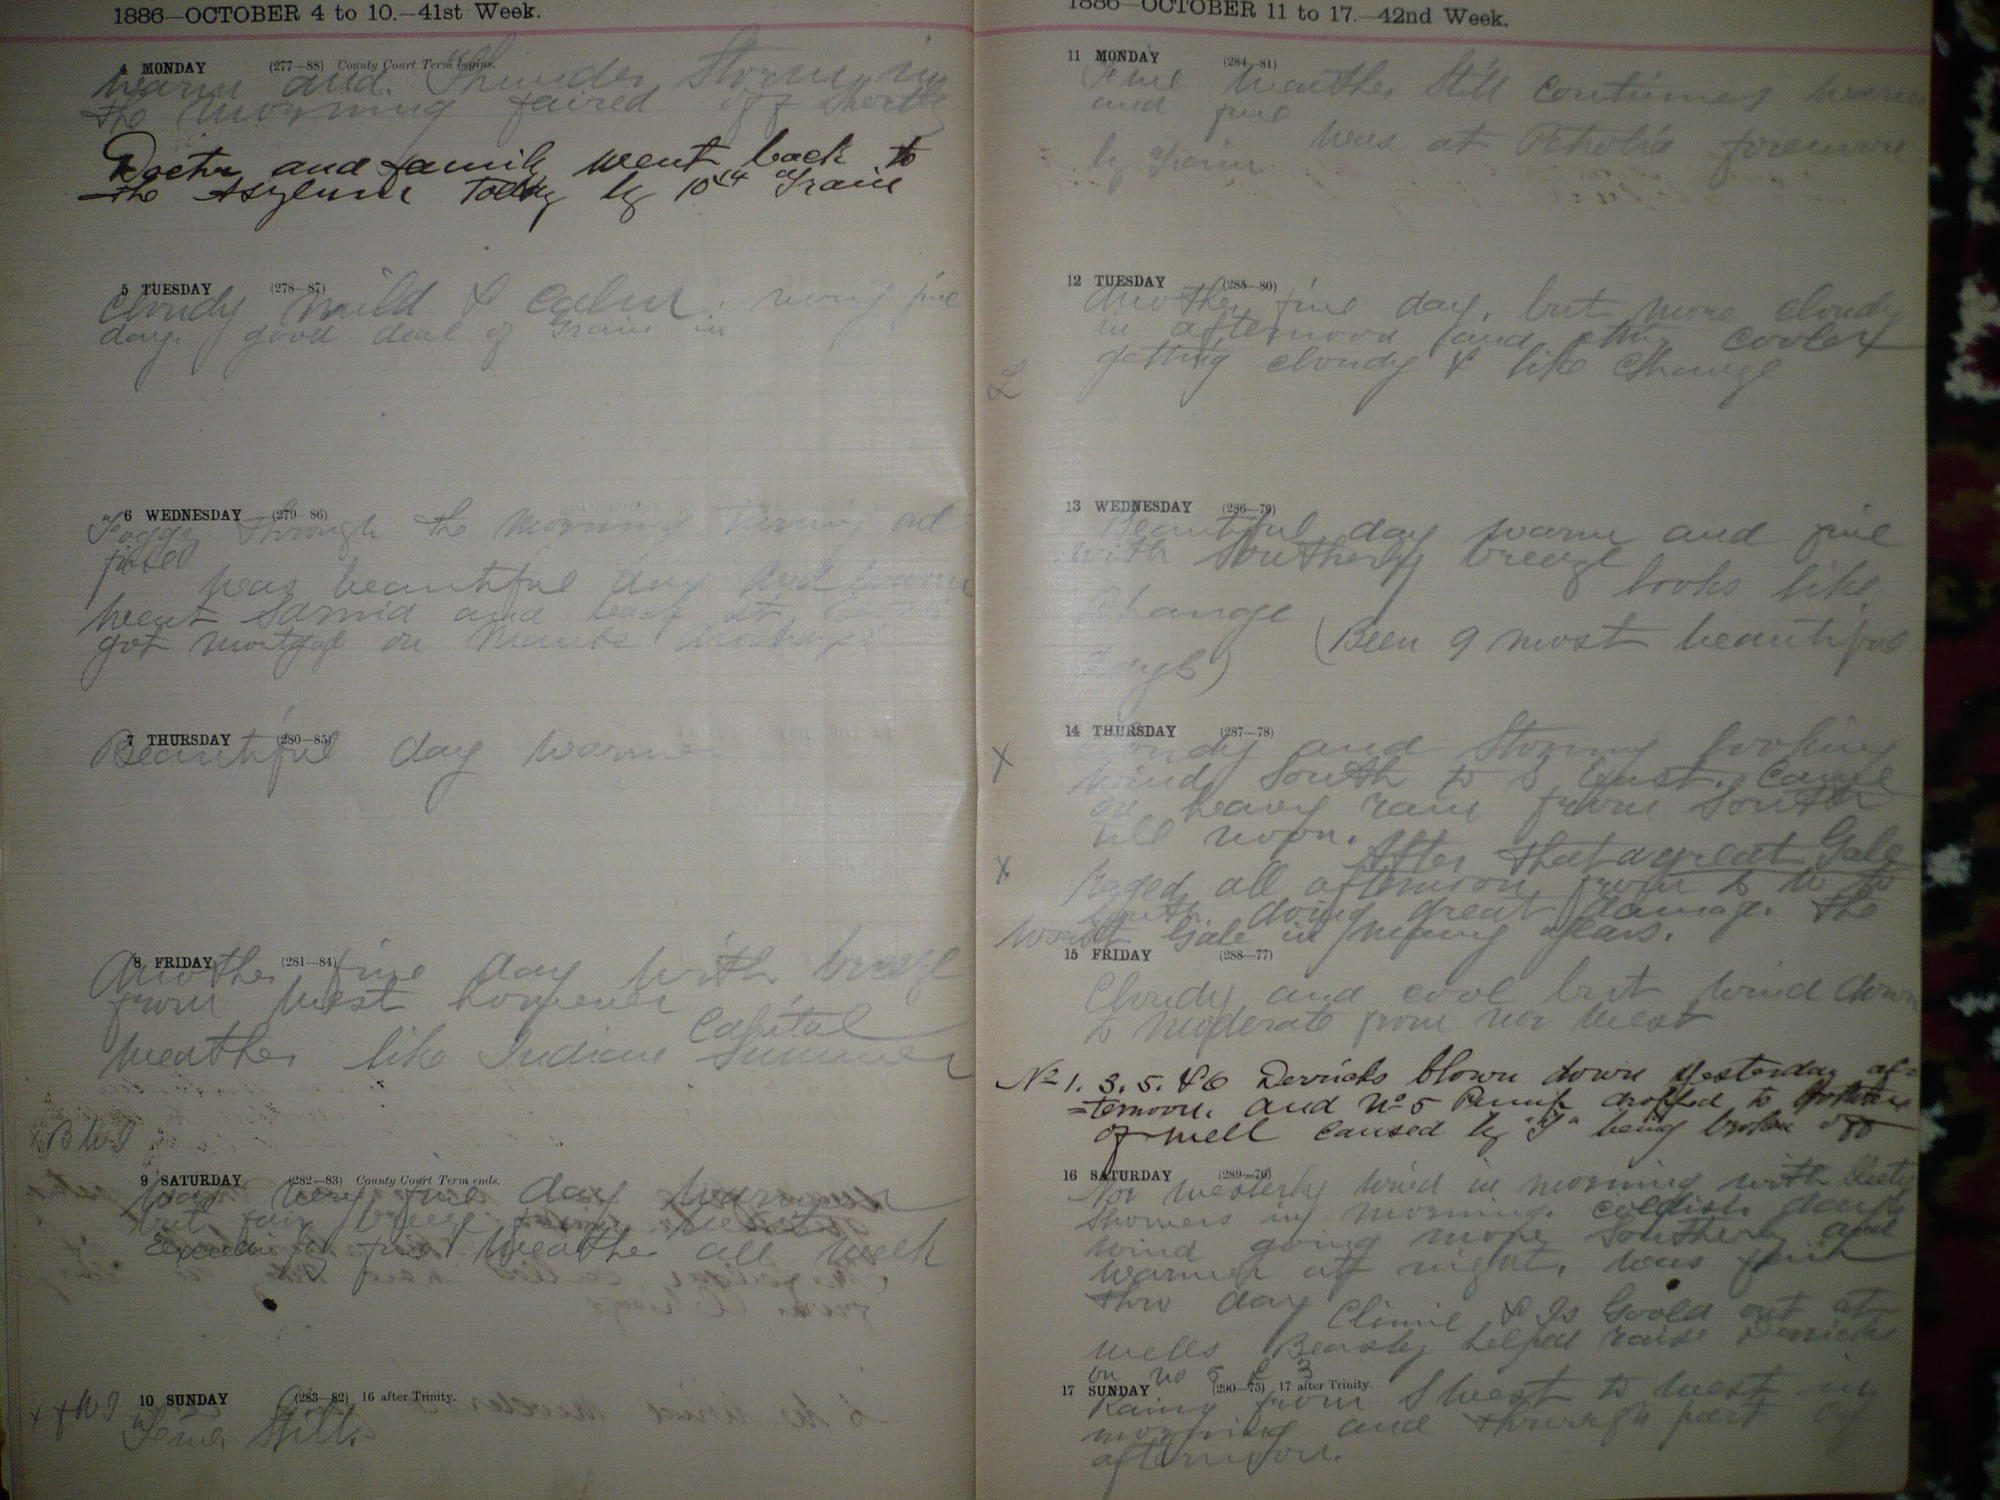 1886—OCTOBER 4 to 10.—41st Week.
4 MONDAY (277—88) County Court Term begins.
Warm and Thunder Storm in
the morning faired off shortly
Doctor and family went back to
the Asylum Today by 10 Train
5 TUESDAY (278—87)
Cloudy mild & calm. very fine
day. good deal of Grain in
6 WEDNESDAY (279—86)
Foggy through the morning turning out
fine
Was beautiful day and warm
Went Sarnia and back
got mortgage on
7 THURSDAY (280—85)
Beautiful day warmer
8 FRIDAY (281—84)
Another fine day with breeze
from West however
Capital
Weather like Indian Summer
9 SATURDAY (282—83) County Court Term ends.
Was very fine day warm
but fair breeze from West
fine weather all week
10 SUNDAY (283—82) 16 after Trinity.
Fine Still.
1886—OCTOBER 11 to 17.—42nd Week.
11 MONDAY (284—81)
Fine Weather Still Continues warm
and fine
Was at Petrolia forenoon
by Train
12 TUESDAY (285—80)
Another fine day, but more cloudy
in afternoon and cooler
getting cloudy & like Change
13 WEDNESDAY (286—79)
Beautiful day warm and fine
with Southerly breeze
looks like
Change
(Been 9 most beautiful
days)
14 THURSDAY (287—78)
X
and Stormy looking
Wind South to S East. Came
on heavy rain from South
till noon.
After that a great Gale
X
raged all afternoon from S W to
South. doing great damage. The
Worst Gale in many years.
15 FRIDAY (288—77)
Cloudy and cool but wind down
to moderate from nor West
No 1. 3. 5. & 6 Derricks blown down yesterday af=
=ternoon. and No 5 Pump dropped to bottom
of well caused by "T" being broken off
16 SATURDAY (289—76)
Nor Westerly wind in morning with
Showers in morning. coldish
Wind going more Southerly and
warmer at night. was fair
thro day
Climie & Gould out at
wells Beasley helped raise Derrick
on no 5 & 3
17 SUNDAY (290—75) 17 after Trinity.
Rainy from S West to West in
morning and through part of
afternoon.